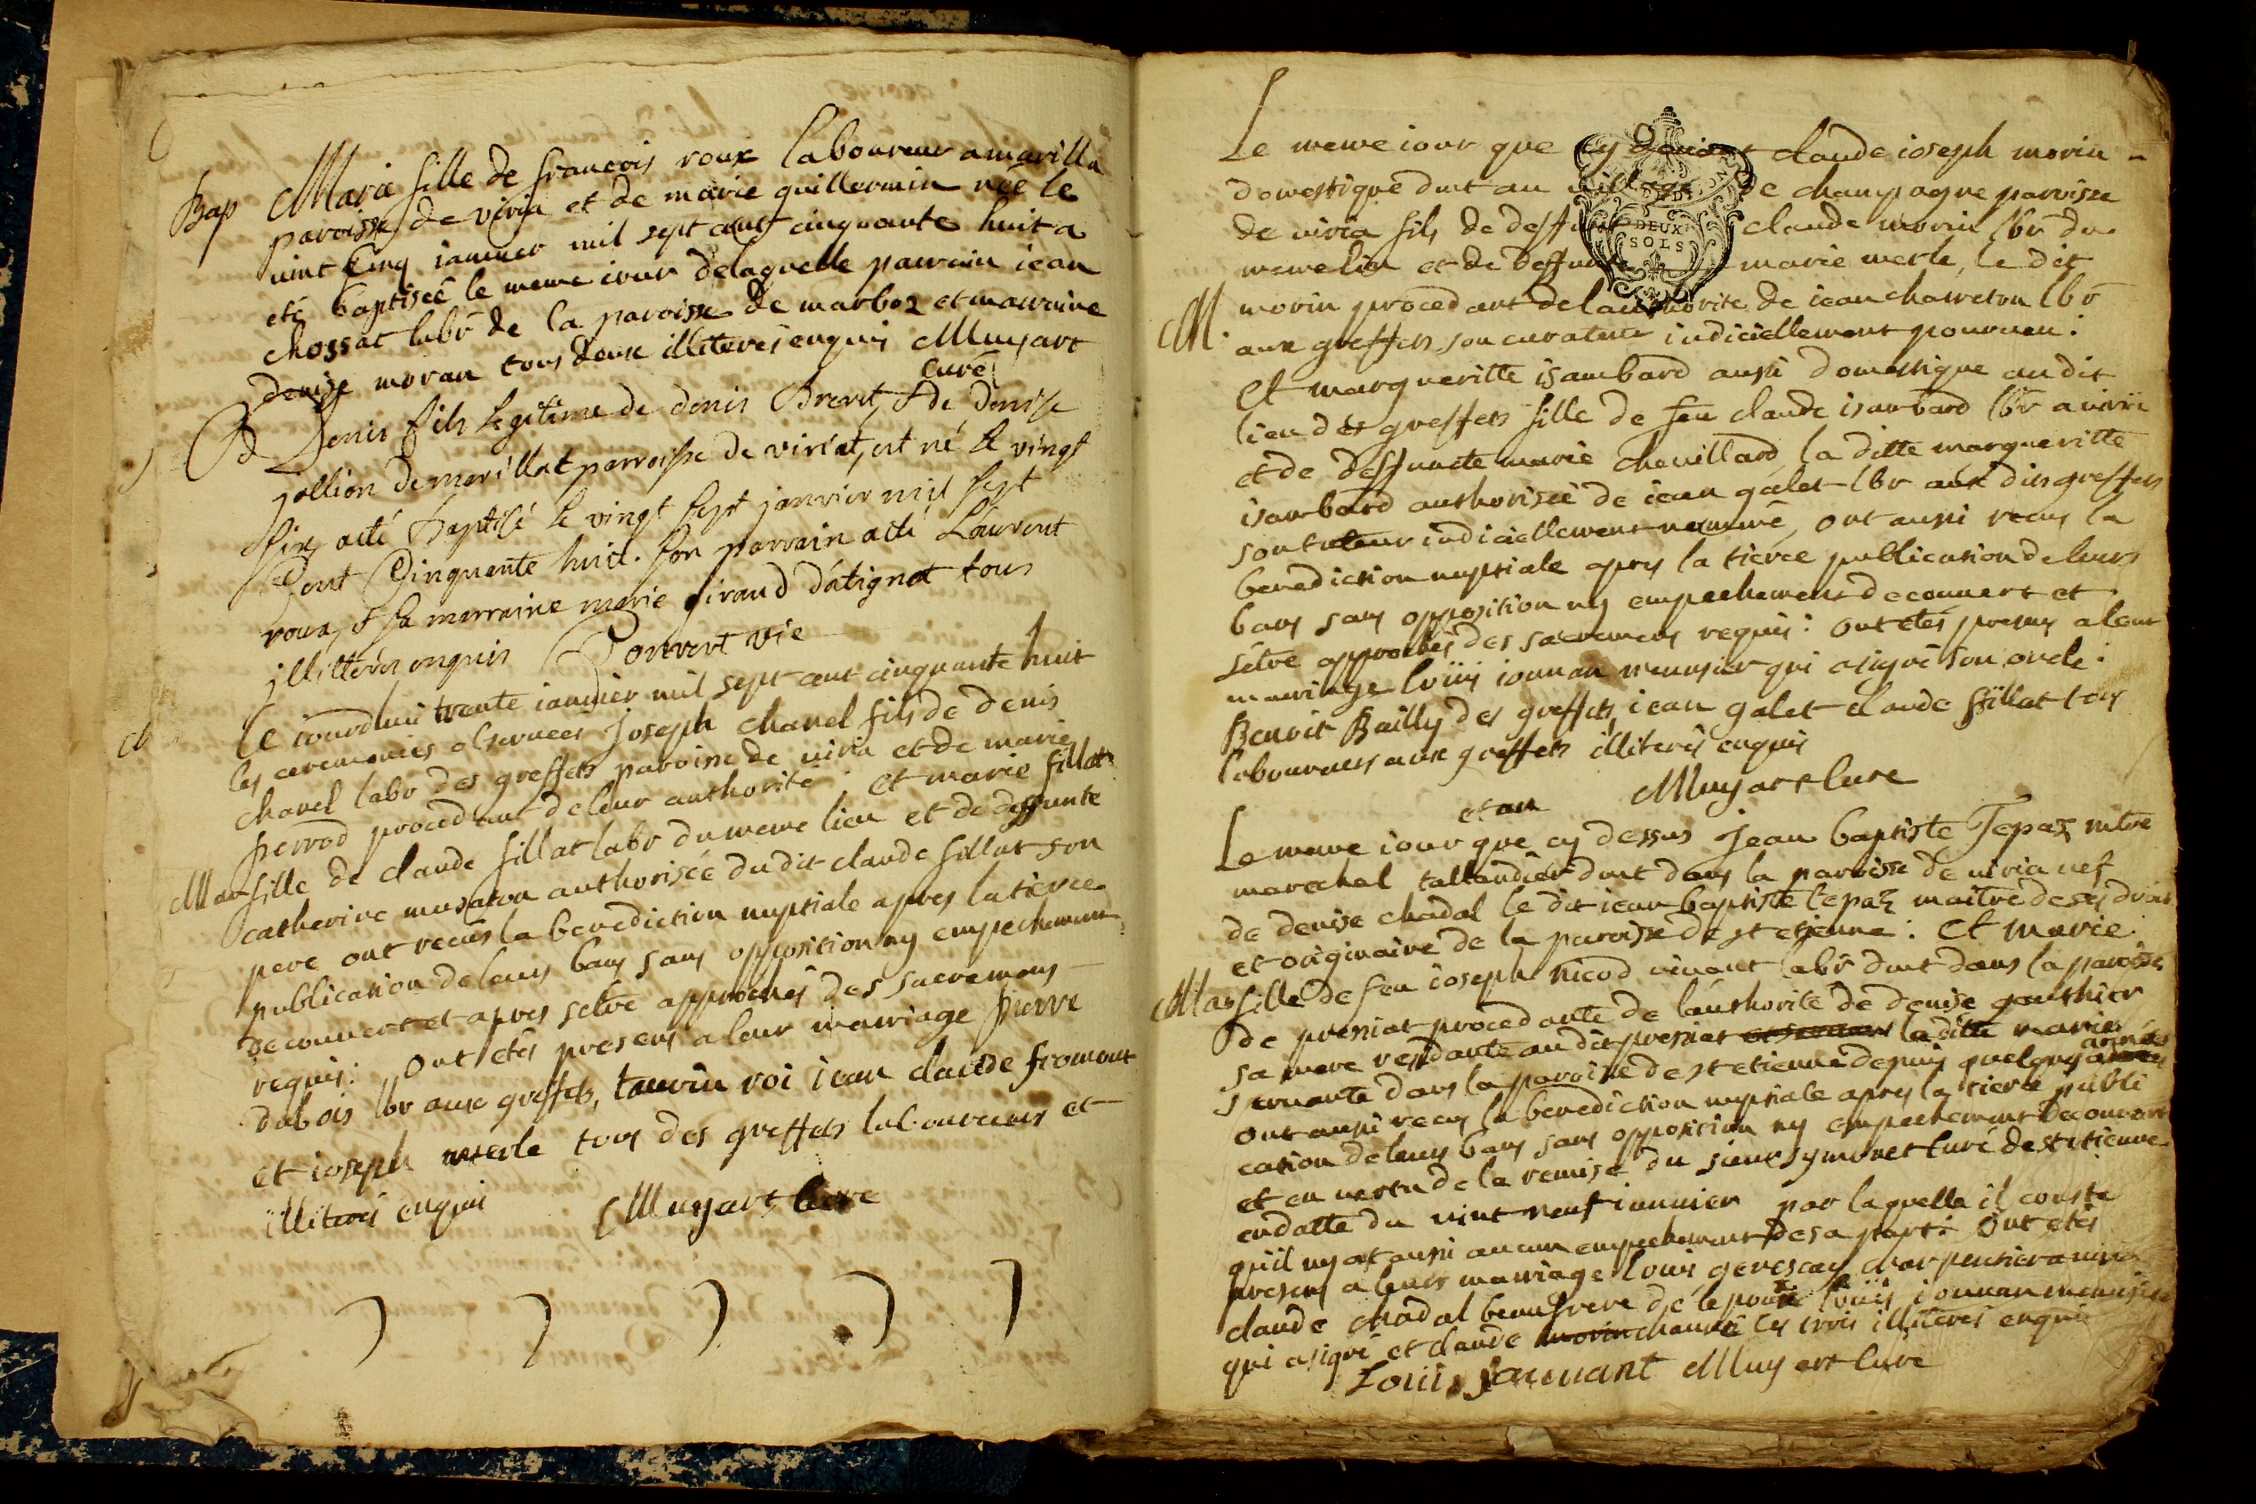 Bap Marie fille de francois roux laboureur a marilla
paroisse de viria et de marie guillermin née le
vint cinq ianuier mil sept cent cinquante huit a
eté baptisée le meme iour de laquelle parrain iean
chossat labr de la paroisse de marboz et marraine
denise moran tous deux illiterés enquis Muyart
Curé
B Denis fils legitime de denis Brevet, & de denise
jollion de marillat parroisse de viriat, est né le vingt
six, a eté baptisé le vingt sept janvier mil sept
Cent Cinquante huit. son parrain a eté Laurent
roux, & sa marraine marie giraud d'atignat tous
jllitterés enquis Convert vic
Ce iourdhui trente ianuier mil sept cent cinquante huit
les ceremonies obseruees Joseph chanel fils de denis
chanel labr des greffets paroisse de viria et de marie
perrod procedant de leur authorité et marie fillat
Mar fille de claude fillat labr du meme lieu et de deffunte
catherine musaton authorisée du dit claude fillat son
pere ont recus la benediction nuptiale apres la tierce
publication de leurs bans sans opposition ny empechement
decouuert et apres setre approchés des sacremens
requis: Ont etés presens a leur mariage pierre
dubois lbr aux greffets, tauvin roi iean claude fromont
et ioseph merle tous des greffets laboureurs et
illiterés enquis Muyart cure
Le meme iour que cy claude ioseph morin
domestique dmt au village de champagne paroisse
de viria fils de deffunt claude morin lbr du
meme lieu et de deffunte marie merle, le dit
M. morin procedant de lauthorité de iean chaireton lbr
aux greffets son curateur iudiciellement pourueu:
Et margueritte isambard aussi domestique au dit
lieu des greffets fille de feu claude isambard lbr a viria
et de deffuncte marie chevillard la ditte margueritte
isambard authorisée de iean galet lbr aux dits greffets
son tuteur iudiciellement nommé, ont aussi recus la
benediction nuptiale apres la tierce publication de leurs
bans sans opposition ny empechement decouuert et
setre approchés des sacremens requis: ont etés presens a leur
mariage louis iouuan menusier qui a signé son oncle:
Benoit Bailly des greffets iean galet claude fillat tous
laboureurs aux greffets illiterés enquis
Muyart Cure
et an
Le meme iour que cy dessus Jean baptiste Tepaz mtre
marechal tallandier dmt dans la paroisse de viria uef
de denise chadal le dit iean baptiste tepaz maitre de ses droits
et originaire de la paroisse de st etienne: Et marie
Mar fille de feu ioseph nicod viuant labr dmt dans la paroisse
de pressiat procedante de lauthorité de denise gauthier
sa mere residante au dit pressiat la ditte marie
seruante dans la paroisse de st etienne depuis quelques années
ont aussi recus la benediction nuptiale apres la tierce publi
cation de leurs bans sans opposition ny empechement decouuert
et en uertu de la remise du sieur symonet curé de st etienne
en datte du uint neuf ianuier par laquelle il conste
quil ny at aussi aucun empechement de sa part: Ont etés
presens a leur mariage louis charpentier a viria
claude chadal beaufrere de lepoux louis iouuan menusier
qui a signé et claude les trois illiterés enquis
Louis Jouuant Muyart Curé
DEUX
SOLS